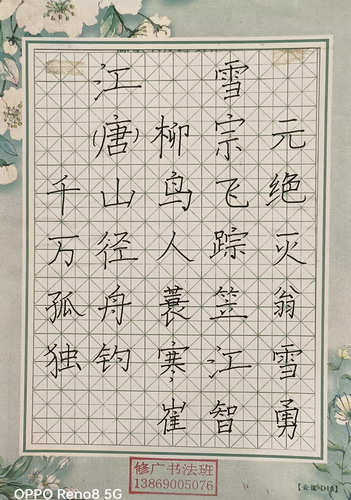 江雪
(唐)柳宗元
千山鸟飞绝
万径人踪灭
孤舟蓑笠翁
独钓寒江雪
崔智勇
修广书法班
13869005076
OPPO Reno8 5G